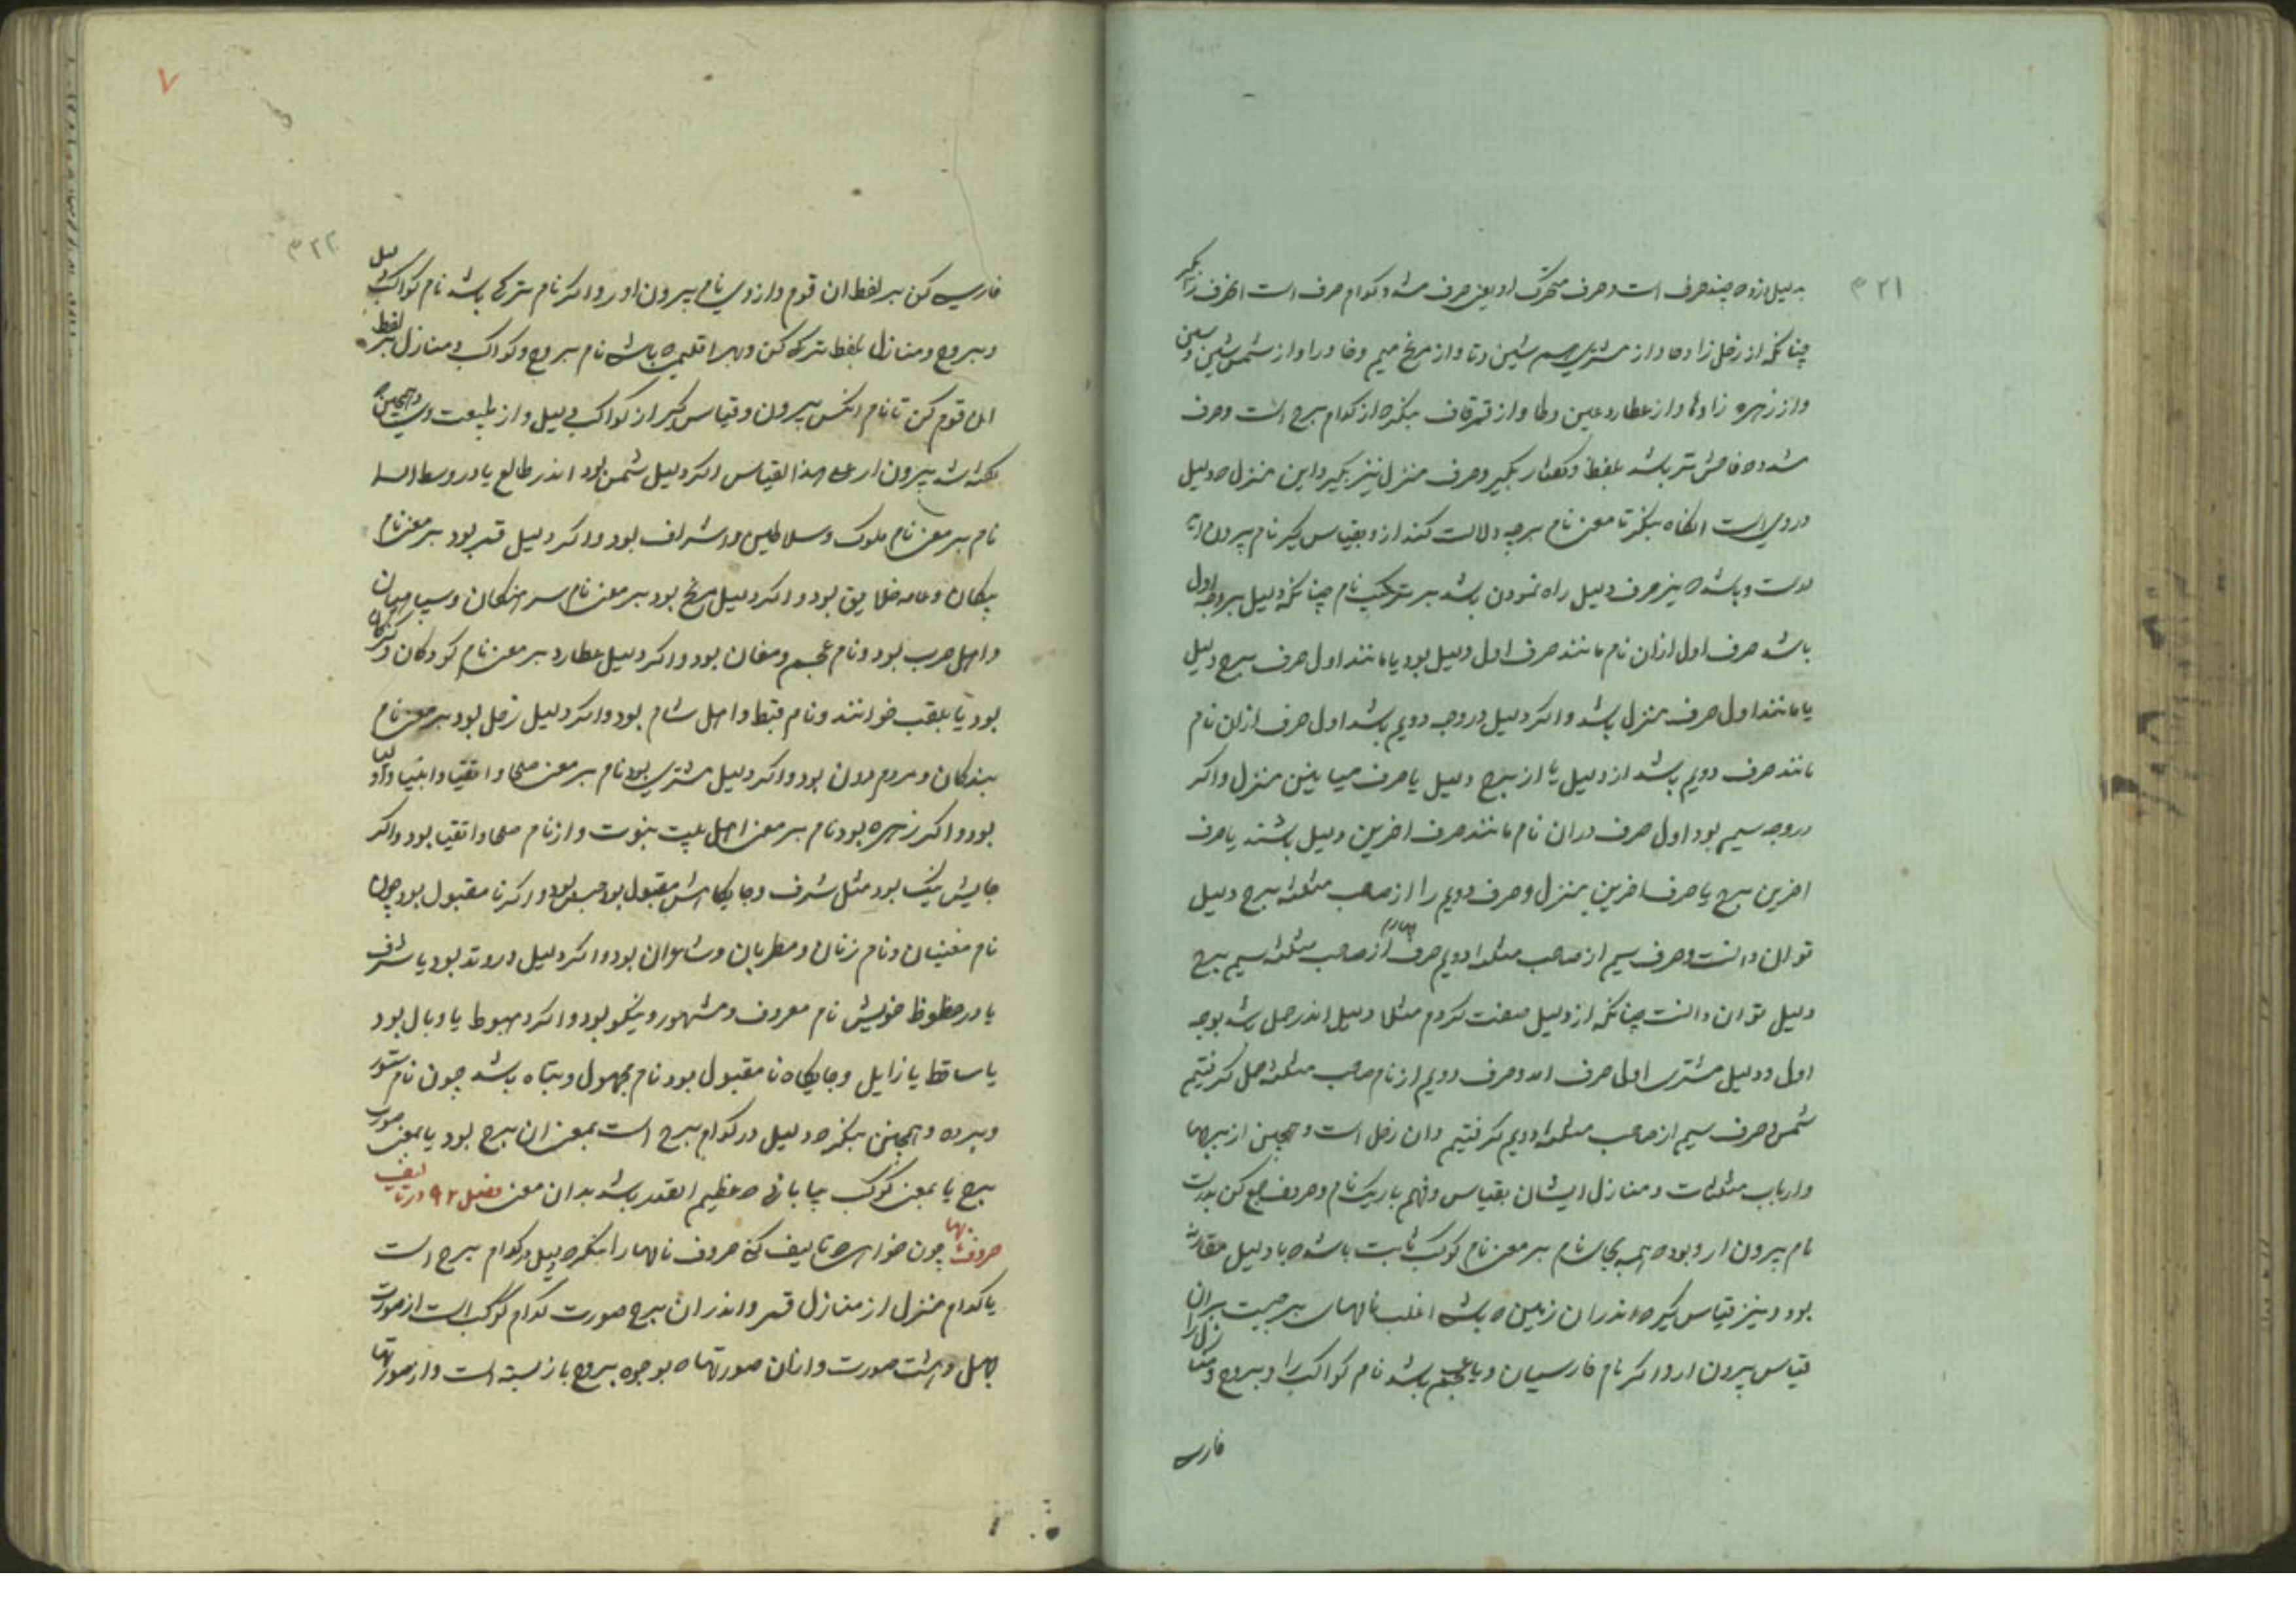 ۳۲۱
بدلیل از وه چند حرف است و حرف متحرک او یعنی حرف مشدد کدام حرف است انحرف را بگیر
چنانکه از زحل زا و حا و از مشتری میم شین و تا و از مریخ میم و خا و را و از شمس شین و سین
و از زهره زا و ها و از عطارد عین و طا و از قمر قاف بنکر ه از کدام برج است و حرف
مشدد ه فاحش تر باشد بلفظ و کفتار بکیر و حرف منزل نیز بکیر و این منزل ه دلیل
در وی است انکاه بنکر تا معنی نام برچه دلالت کند از و بقیاس کیر نام بیرون اید
درست و باشد ه نیز حرف دلیل راه نمودن باشد بر ترکیب نام چنانکه دلیل بروجه اول
باشد حرف اول ازان نام مانند حرف اول دلیل بود یا مانند اول حرف برج دلیل
یا مانند اول حرف منزل باشد و اکر دلیل در وجه دویم باشد اول حرف ازان نام
مانند حرف دویم باشد از دلیل یا از برج دلیل یا حرف میانین منزل و اکر
در وجه سیم بود اول حرف دران نام مانند حرف اخرین دلیل باشند یا حرف
اخرین برج یا حرف اخرین منزل و حرف دویم را از صاحب مثلثه برج دلیل
توان دانست و حرف سیم از صاحب مثلثه دویم حرف چهارم از صاحب مثلثه سیم برج
دلیل توان دانست چنانکه از دلیل صفت کردم مثلا دلیل اندر حمل باشد بوجه
اول و دلیل مشتری اول حرف امد و حرف دویم از نام صاحب مثلثه حمل کرفتیم
شمس و حرف سیم از صاحب مثلثه دویم کرفتیم وان زحل است و همچنین از برجها
و ارباب مثلثات و منازل ایشان بقیاس و فهم باریک نام و حروف جمع کن بدرست
نام بیرون ار و بود ه همه بجای نام بر معنی نام کوکب ثابت باشد ه با دلیل مقارن
بود و نیز قیاس کیر ه اندران زمین ه باشی اغلب نامهای بر چیست بران
قیاس بیرون ار و اکر نام فارسیان و یا عجم باشد نام کواکب را و بروج و منازل را
فارسی
۷
۳۲۲
فارسی کن بر لفظ ان قوم و از وی نام بیرون اور و اکر نام ترکی باشد نام کواکب دلیل
و بروج و منازل بلفظ ترکی کن و بهر اقلیمی ه باشی نام بروج و کواکب و منازل بر لفظ
اهل قوم کن تا نام انکس بیرون و قیاس کیر از کواکب دلیل و از طبیعت وی و همچنین
بیرون ار علی هذا القیاس اکر دلیل شمس بود اندر طالع یا در وسط السما
نام بر معنی نام ملوک و سلاطین و اشراف بود و اکر دلیل قمر بود بر معنی نام
پیکان و عامه خلایق بود و اکر دلیل مریخ بود بر معنی نام سرهنکان و سپاهیان
و اهل حرب بود و نام عجم و مغان بود و اکر دلیل عطارد بر معنی نام کودکان و
بود یا بلقب خوانند و نام قبط و اهل شام بود و اکر دلیل زحل بود بر معنی نام
بندکان و مردم دون بود و اکر دلیل مشتری بود نام بر معنی صلحا و اتقیا و انبیا و اولیا
بود و اکر زهره بود نام بر معنی اهل بیت نبوت و از نام صلحا و اتقیا بود و اکر
جایش نیک بود مثل شرف و جایکاهش مقبول بود و اکر نا مقبول بود چون
نام مغنیان و نام زنان و مطربان و شاعران بود و اکر دلیل در وتد بود یا شرف
یا در حظوظ خویش نام معروف و مشهور و نیکو بود و اکر در هبوط یا وبال بود
یا ساقط یا زایل و جایکاه نا مقبول بود نام مجهول و تباه باشد چون نام ستور
و برده و همچنین بنکر ه دلیل در کدام برج است بمعنی ان برج بود یا بمعنی صورت
برج یا بمعنی کوکب بیابانی ه عظیم القدر باشد بدان معنی فصل ۹۲ در تالیف
حروف نامها چون خواهی ه تالیف کنی حروف نامها را بنکر ه دلیل در کدام برج است
یا کدام منزل از منازل قمر و اندر ان برج صورت کدام کوکب است از صورت
چهل و هشت صورت و ازان صورتها ه بوجوه بروج باز بسته است و از صورتها